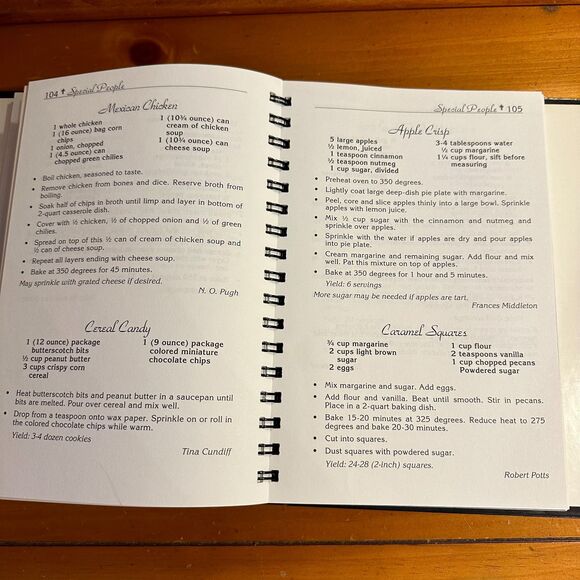 104 ✝ Special People
Mexican Chicken
1 whole chicken
1 (16 ounce) bag corn
chips
1 onion, chopped
1 (4.5 ounce) can
chopped green chilies
1 (10¾ ounce) can
cream of chicken
soup
1 (10¾ ounce) can
cheese soup
• Boil chicken, seasoned to taste.
• Remove chicken from bones and dice. Reserve broth from
boiling.
• Soak half of chips in broth until limp and layer in bottom of
2-quart casserole dish.
• Cover with ½ chicken, ½ of chopped onion and ½ of green
chilies.
• Spread on top of this ½ can of cream of chicken soup and
½ can of cheese soup.
• Repeat all layers ending with cheese soup.
• Bake at 350 degrees for 45 minutes.
May sprinkle with grated cheese if desired.
N. O. Pugh
Cereal Candy
1 (12 ounce) package
butterscotch bits
½ cup peanut butter
3 cups crispy corn
cereal
1 (9 ounce) package
colored miniature
chocolate chips
• Heat butterscotch bits and peanut butter in a saucepan until
bits are melted. Pour over cereal and mix well.
• Drop from a teaspoon onto wax paper. Sprinkle on or roll in
the colored chocolate chips while warm.
Yield: 3-4 dozen cookies
Tina Cundiff
Special People ✝ 105
Apple Crisp
5 large apples
½ lemon, juiced
1 teaspoon cinnamon
½ teaspoon nutmeg
1 cup sugar, divided
3-4 tablespoons water
½ cup margarine
1¼ cups flour, sift before
measuring
• Preheat oven to 350 degrees.
• Lightly coat large deep-dish pie plate with margarine.
• Peel, core and slice apples thinly into a large bowl. Sprinkle
apples with lemon juice.
• Mix ½ cup sugar with the cinnamon and nutmeg and
sprinkle over apples.
• Sprinkle with the water if apples are dry and pour apples
into pie plate.
• Cream margarine and remaining sugar. Add flour and mix
well. Pat this mixture on top of apples.
• Bake at 350 degrees for 1 hour and 5 minutes.
Yield: 6 servings
More sugar may be needed if apples are tart.
Frances Middleton
Caramel Squares
¾ cup margarine
2 cups light brown
sugar
2 eggs
1 cup flour
2 teaspoons vanilla
1 cup chopped pecans
Powdered sugar
• Mix margarine and sugar. Add eggs.
• Add flour and vanilla. Beat until smooth. Stir in pecans.
Place in a 2-quart baking dish.
• Bake 15-20 minutes at 325 degrees. Reduce heat to 275
degrees and bake 20-30 minutes.
• Cut into squares.
• Dust squares with powdered sugar.
Yield: 24-28 (2-inch) squares.
Robert Potts